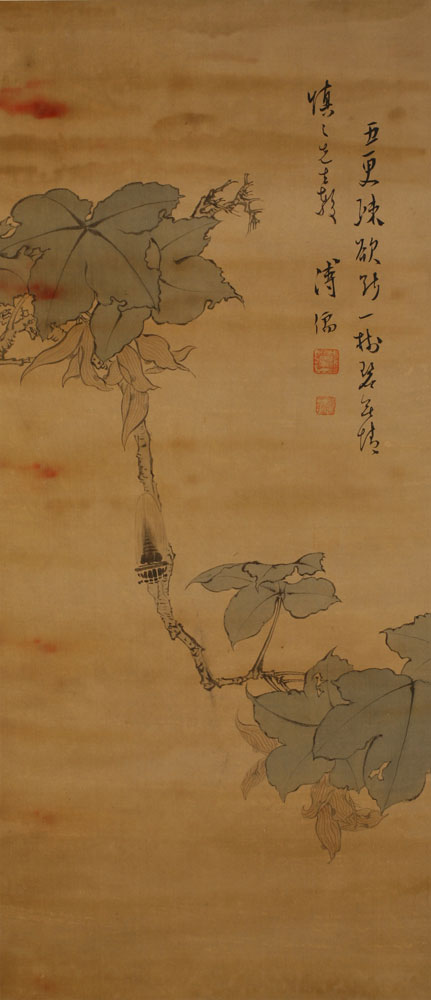 五更疎欲斷一樹碧無情
慎之先生教
溥儒